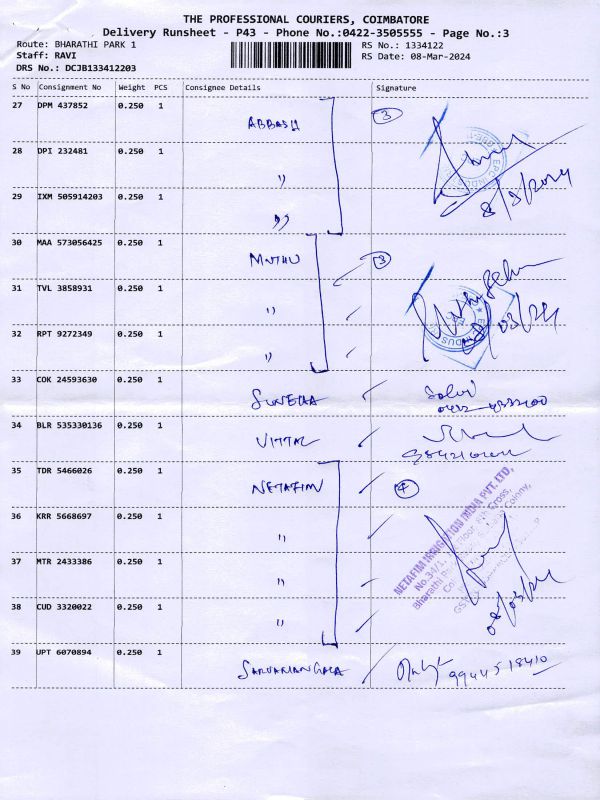 THE PROFESSIONAL COURIERS, COIMBATORE
Delivery Runsheet - P43 - Phone No.:0422-3505555 - Page No.:3
Route: BHARATHI PARK 1 RS No.: 1334122
Staff: RAVI RS Date: 08-Mar-2024
DRS No.: DCJB133412203
S No Consignment No Weight PCS Consignee Details Signature
27 DPM 437852 0.250 1 ABBASH 3
28 DPI 232481 0.250 1 "
29 IXM 505914203 0.250 1 "
8/3/2024
30 MAA 573056425 0.250 1 MUTHU 3
31 TVL 3858931 0.250 1 "
32 RPT 9272349 0.250 1 "
33 COK 24593630 0.250 1
34 BLR 535330136 0.250 1 VITTAL
35 TDR 5466026 0.250 1 NETAFIM 4
NETAFIM IRRIGATION INDIA PVT. LTD,
36 KRR 5668697 0.250 1 "
37 MTR 2433386 0.250 1 "
38 CUD 3320022 0.250 1 "
08/03/24
39 UPT 6070894 0.250 1 9944518410